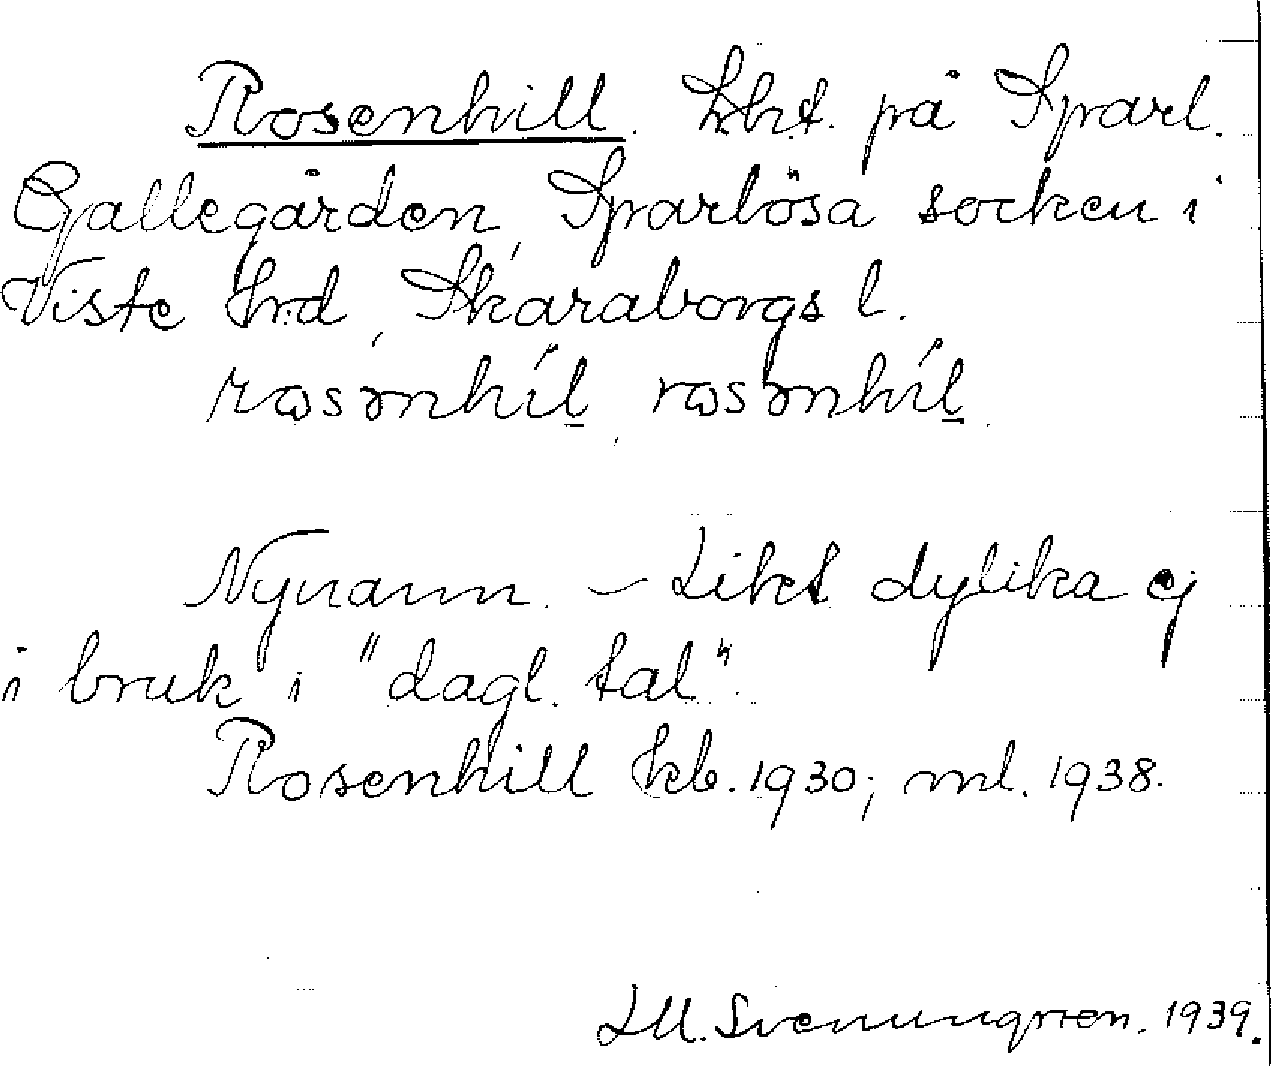 Rosenhill. Lht. på Sparl.
Gallegården, Sparlösa socken i
Viste hrd, Skaraborgs l.
rosənhíl, rosənhíl.
Nynamn. – Likt dylika ej
i bruk i "dagl. tal".
Rosenhill kb. 1930; ml. 1938.
Svenungsson. 1939.